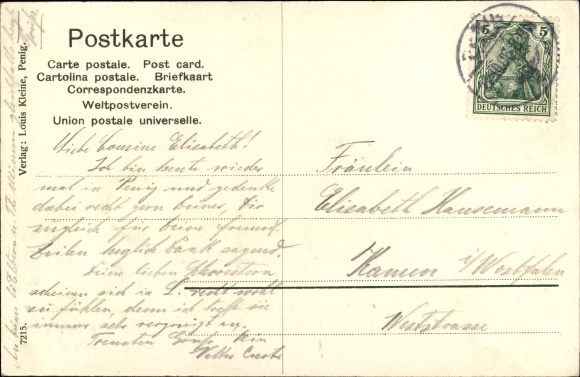 Postkarte
Carte postale. Post card.
Cartolina postale. Briefkaart
Correspondenzkarte.
Weltpostverein.
Union postale universelle.
Verlag: Louis Kleine, Penig.
7215.
Liebe Cousine Elisabeth!
Ich bin heute wieder
mal in Penig und gedenke
dabei recht gern deiner, dir
zugleich für deine freund.
Zeilen herzlich Dank sagend.
Deine lieben Schwestern
scheinen sich in L. recht wohl
zu fühlen, denn ich treffe sie
immer sehr vergnügt an.
Treusten Gruß Dein
Vetter
5 5
DEUTSCHES REICH
Fräulein
Elisabeth Hausemann
Kamen i/Westfalen
Weststrasse